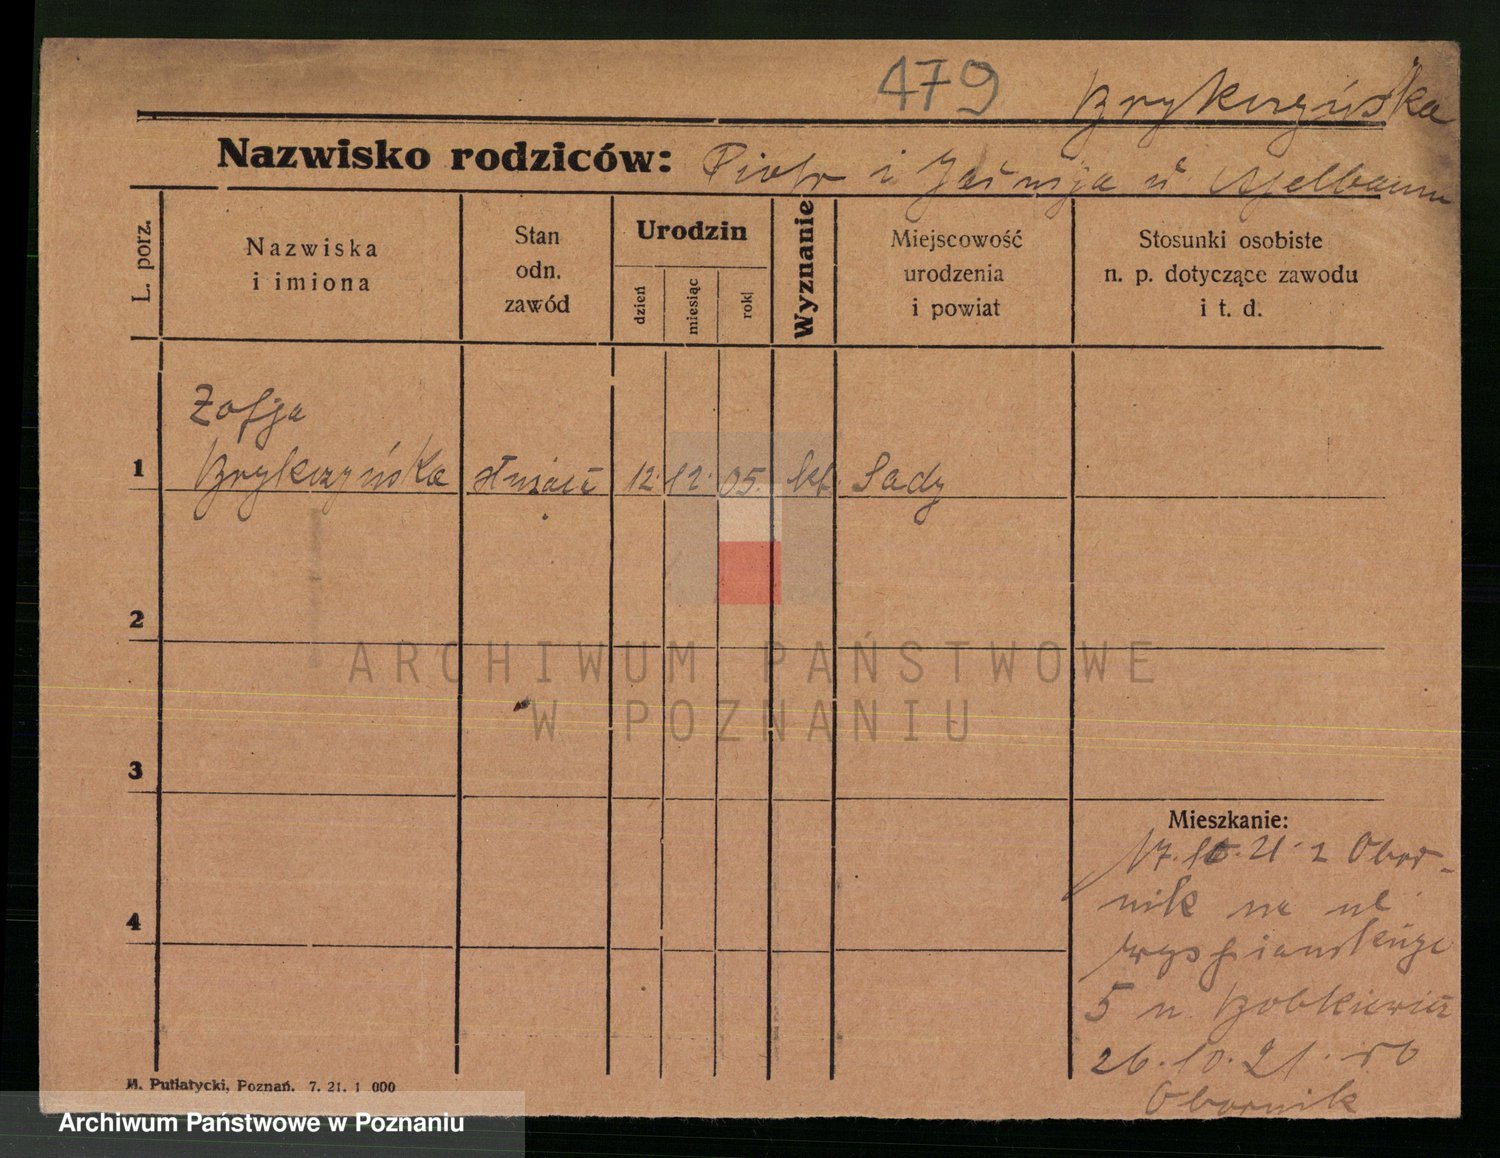 479 Brykczyńska
Nazwisko rodziców: Piotr i
L. porz.
Nazwiska
i imiona
Stan
odn.
zawód
Urodzin
dzień
miesiąc
rok
Wyznanie
Miejscowość
urodzenia
i powiat
Stosunki osobiste
n. p. dotyczące zawodu
i t. d.
Zofja
1 Brykczyńska 12. 12. 05. kt. Sady
2
ARCHIWUM PAŃSTWOWE
W POZNANIU
3
4
Mieszkanie:
17. 10. 21. z Obor-
nik na ul
5 u Bobkiewicz
26. 10. 21. do
Obornik
M. Putiatycki, Poznań. 7. 21. 1 000
Archiwum Państwowe w Poznaniu